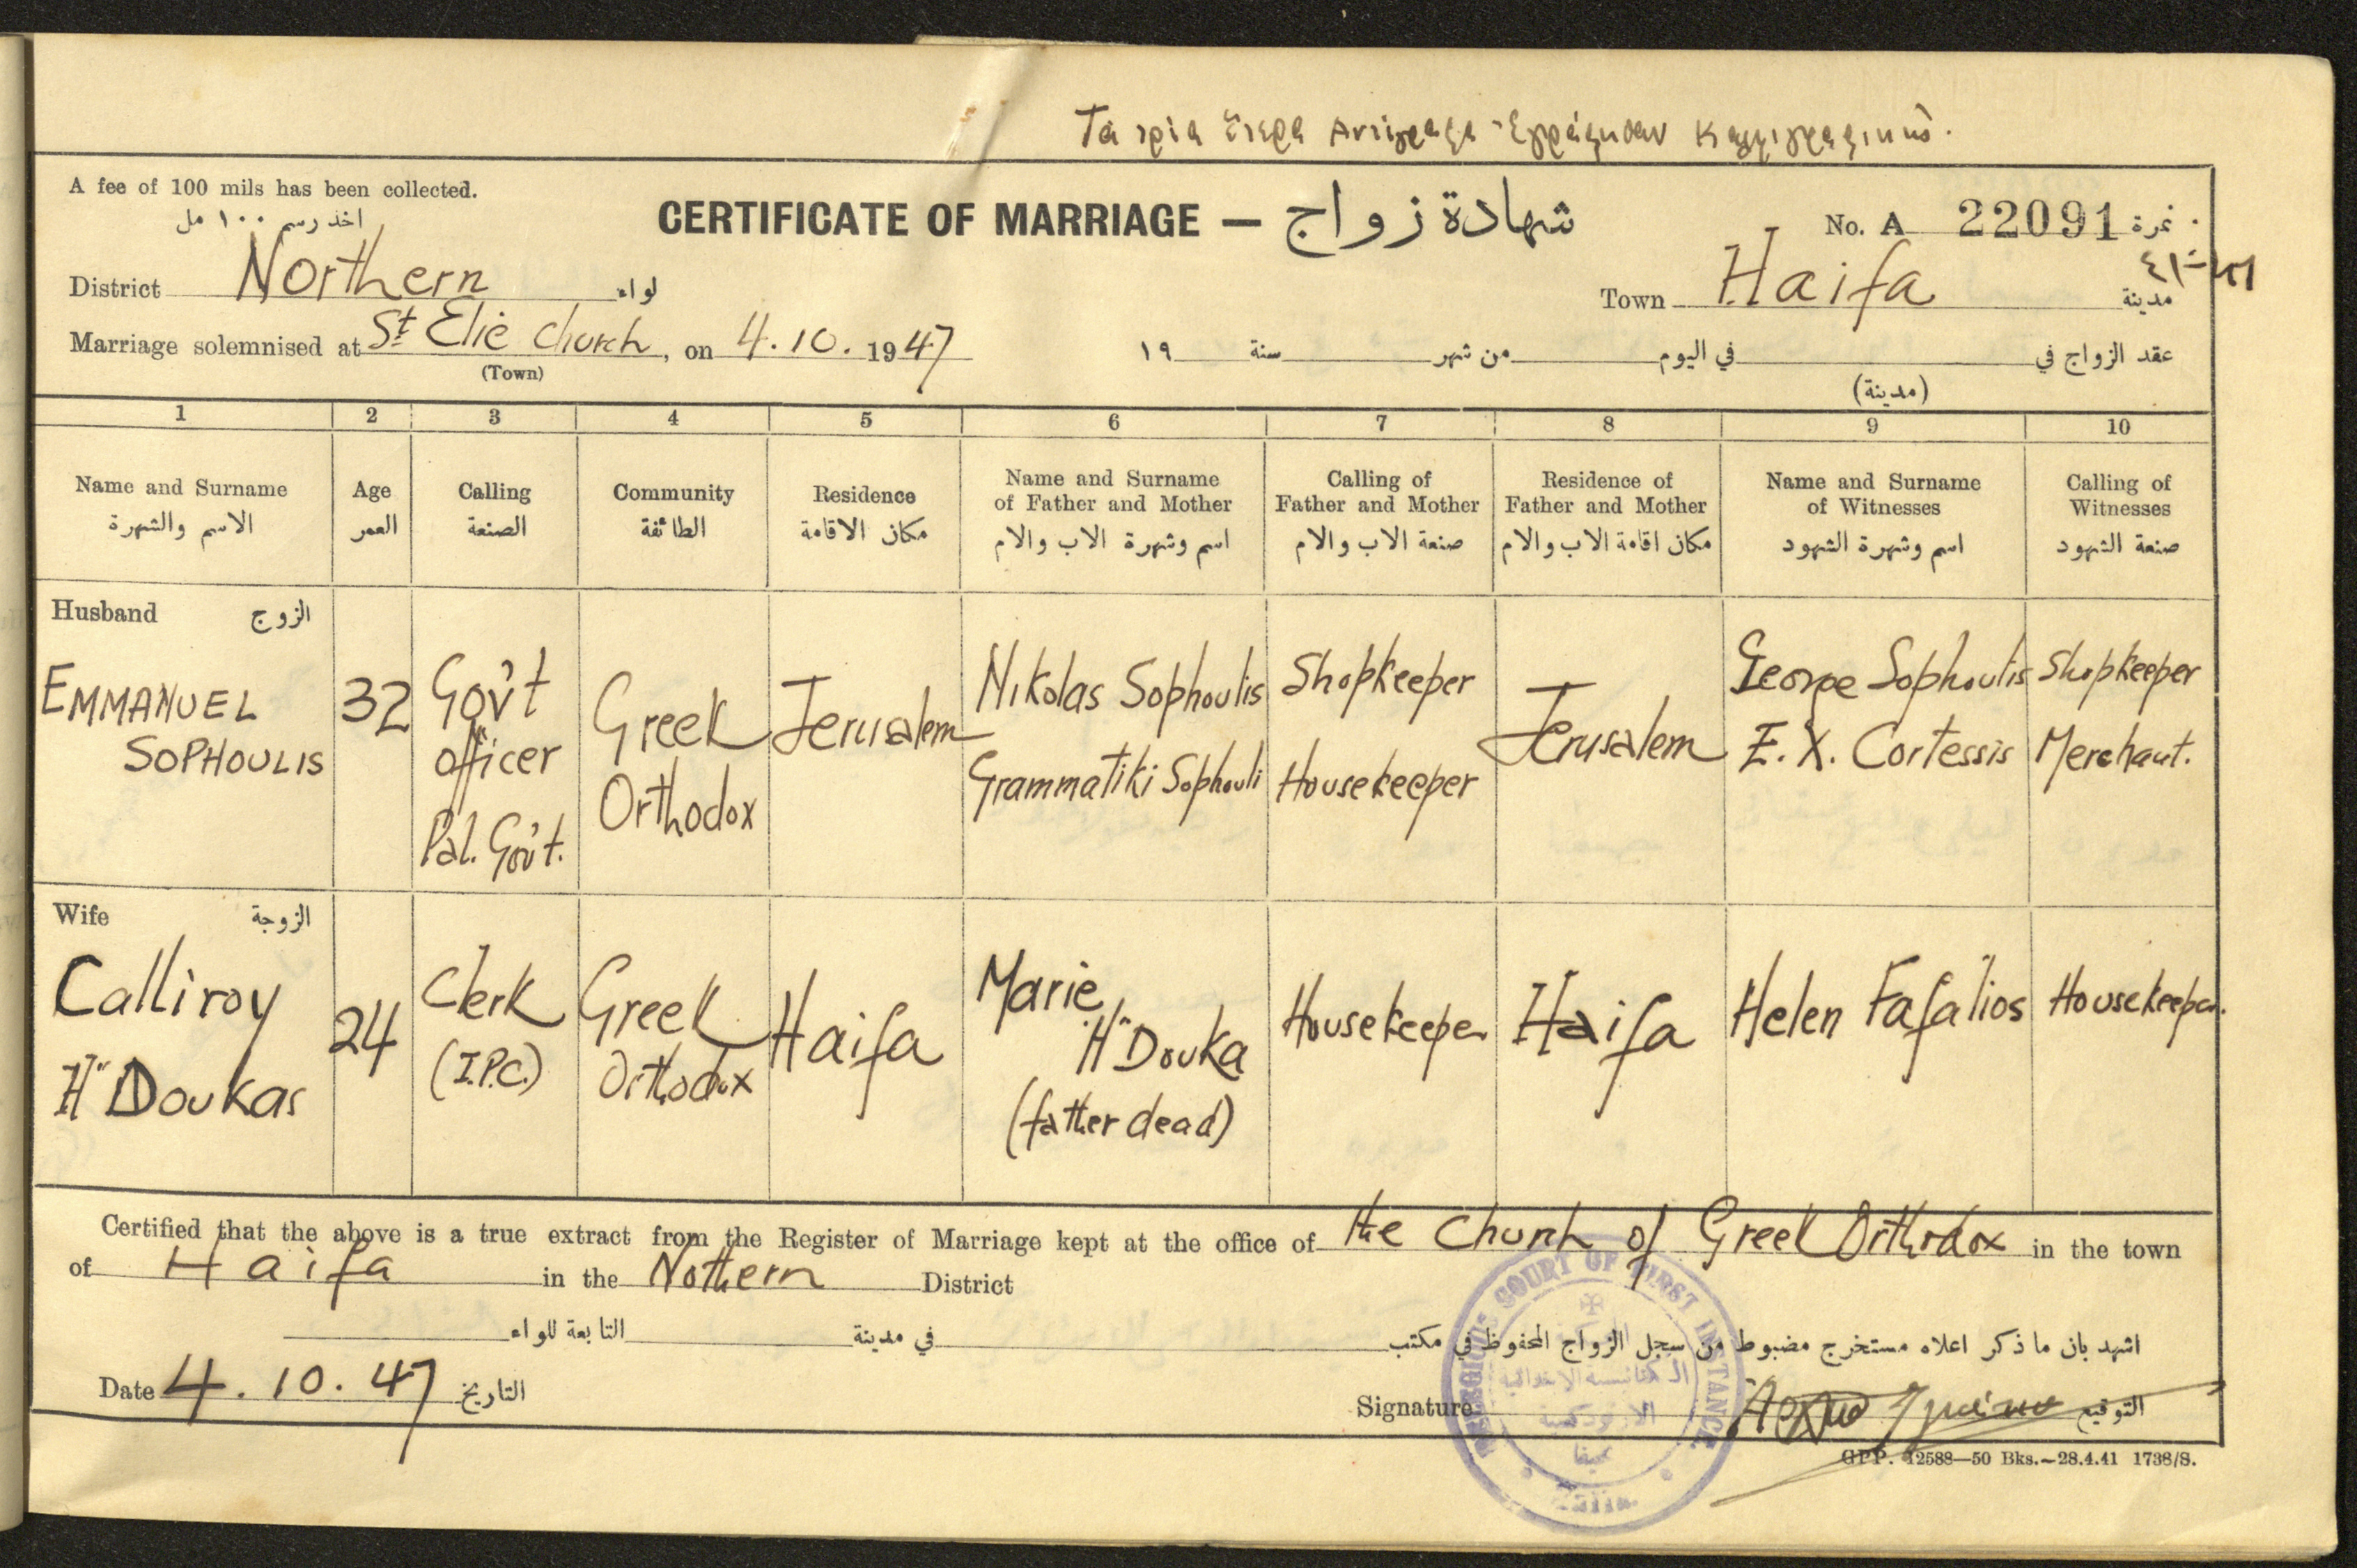 Τα τρία έτερα Αντίγραφα εγράφησαν Καλλιγραφικώς.
A fee of 100 mils has been collected.
اخذ رسم ١٠٠ مل
CERTIFICATE OF MARRIAGE — شهادة زواج
No. A 22091 نمرة
District Northern لواء
Town Haifa مدينة
Marriage solemnised at St Elie Church, on 4.10.1947
(Town)
عقد الزواج في في اليوم من شهر سنة ١٩
(مدينة)
1 2 3 4 5 6 7 8 9 10
Name and Surname
الاسم والشهرة
Age
العمر
Calling
الصنعة
Community
الطائفة
Residence
مكان الاقامة
Name and Surname
of Father and Mother
اسم وشهرة الاب والام
Calling of
Father and Mother
صنعة الاب والام
Residence of
Father and Mother
مكان اقامة الاب والام
Name and Surname
of Witnesses
اسم وشهرة الشهود
Calling of
Witnesses
صنعة الشهود
Husband الزوج
EMMANUEL
SOPHOULIS
32
Gov't
officer
Pal. Gov't.
Greek
Orthodox
Jerusalem
Nikolas Sophoulis
Grammatiki Sophouli
Shopkeeper
Housekeeper
Jerusalem
George Sophoulis
E. X. Cortessis
Shopkeeper
Merchant.
Wife الزوجة
Calliroy
H" Doukas
24
Clerk
(I.P.C.)
Greek
Orthodox
Haifa
Marie
H" Douka
(father dead)
Housekeeper
Haifa
Helen Fafalios
Housekeeper.
Certified that the above is a true extract from the Register of Marriage kept at the office of the Church of Greek Orthodox in the town
of Haifa in the Nothern District
اشهد بان ما ذكر اعلاه مستخرج مضبوط من سجل الزواج المحفوظ في مكتب في مدينة التابعة للواء
Date 4.10.47 التاريخ
Signature التوقيع
RELIGIOUS COURT OF FIRST INSTANCE
الارثوذكسية
بحيفا
Haifa
GPP. 12588—50 Bks.—28.4.41 1738/S.